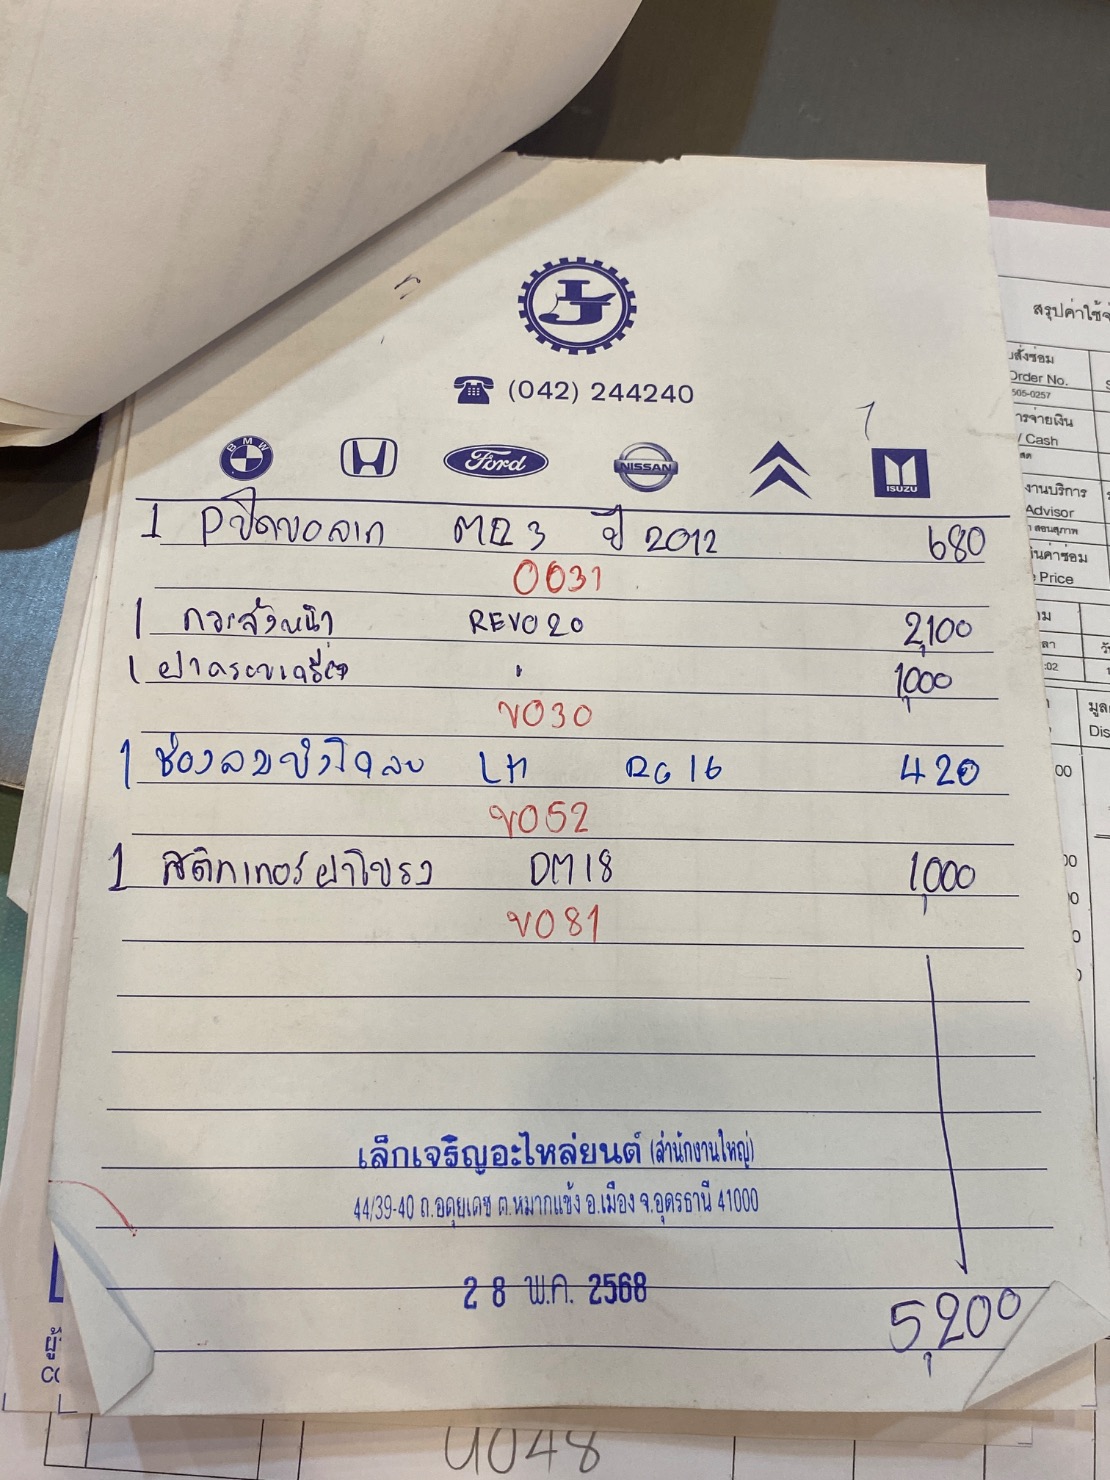 สรุปค่าใช้จ่
(042) 244240
BMW Ford NISSAN ISUZU
1 Pปิดขอลาก MQ 3 ปี 2012 680
0031
1 กระจังหน้า REVO 20 2,100
1 ฝาครอบเครื่อง " 1,000
ข030
1 ช่องลมบังโคลน LH RG 16 420
ข052
1 สติกเกอร์ฝาโปรง DM 18 1,000
ข081
เล็กเจริญอะไหล่ยนต์ (สำนักงานใหญ่)
44/39-40 ถ.อดุยเดช ต.หมากแข้ง อ.เมือง จ.อุดรธานี 41000
28 พ.ค. 2568
5,200
สั่งซ่อม
Order No.
505-0257
ารจ่ายเงิน
/ Cash
งานบริการ
Advisor
Price
:02
Dis
U048